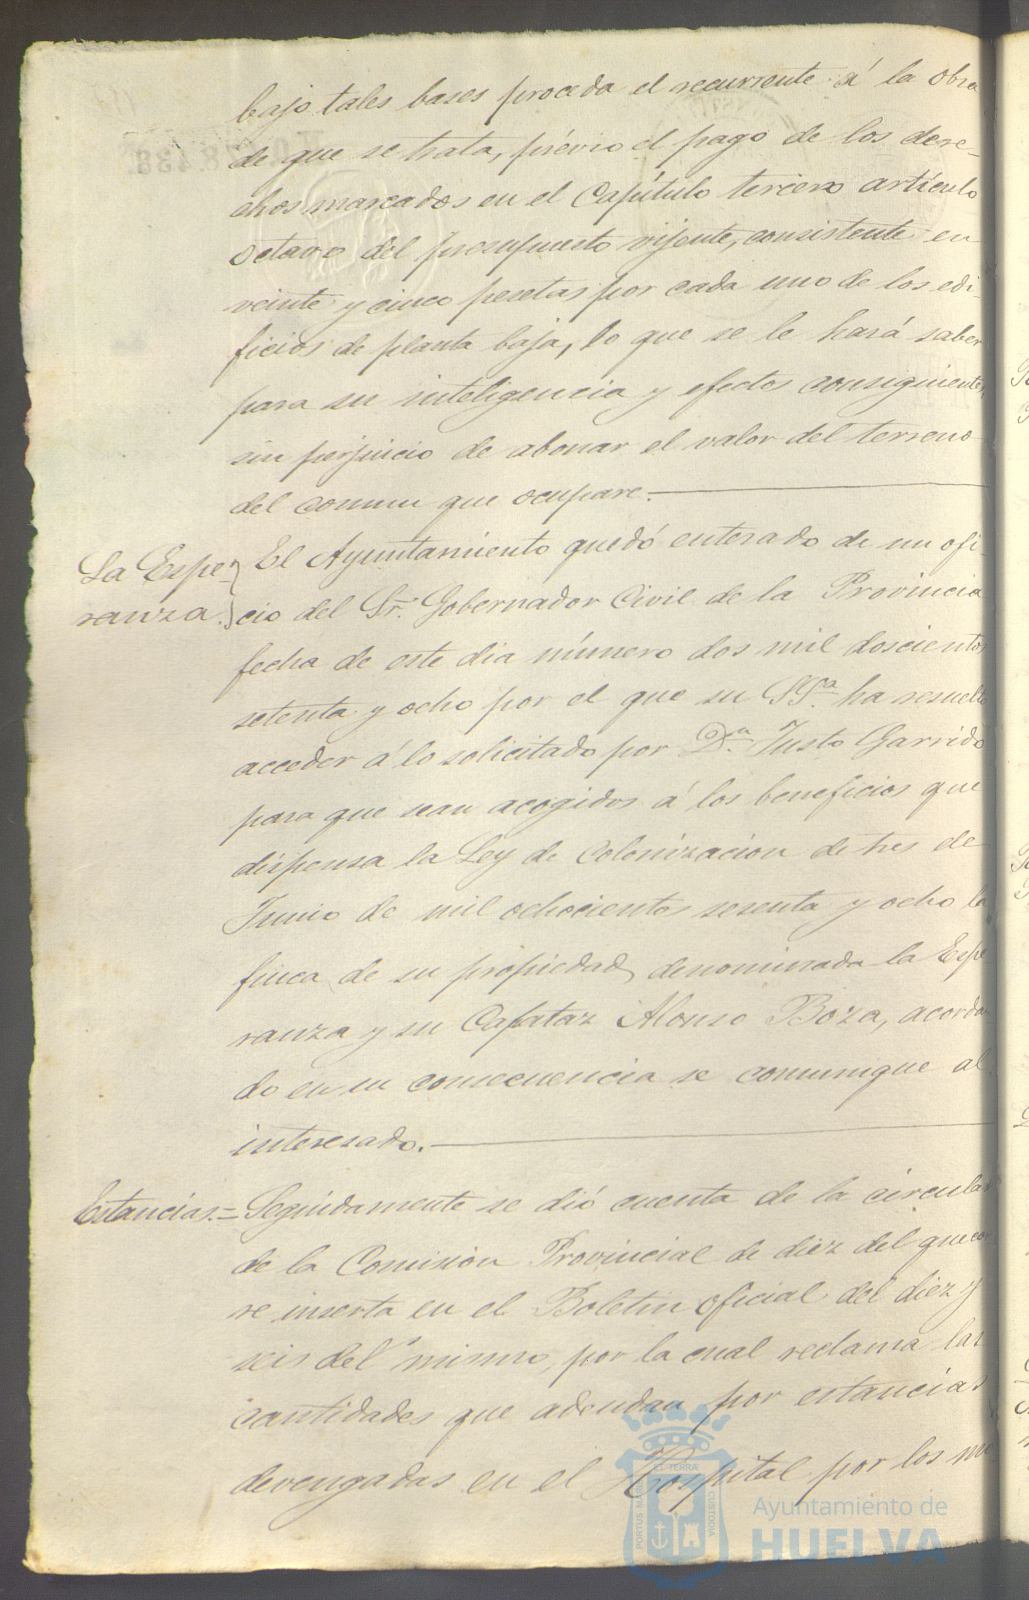 bajo tales bases proceda el recurrente á la obra
de que se trata, prévio el pago de los dere-
chos marcados en el Capítulo tercero artículo
octavo del presupuesto vijente, consistente en
veinte y cinco pesetas por cada uno de los edi-
ficios de planta baja, lo que se le hará saber
para su inteligencia y efectos consiguientes,
sin perjuicio de abonar el valor del terreno
del comun que ocupare.
La Espe- El Ayuntamiento quedó enterado de un ofi-
ranza. cio del Sr. Gobernador Civil de la Provincia
fecha de este dia número dos mil doscientos
setenta y ocho por el que su Sª. ha resuelto
acceder á lo solicitado por D.ª Justo Garrido
para que sean acogidos á los beneficios que
dispensa la Ley de Colonizacion de tres de
Junio de mil ochocientos sesenta y ocho la
finca de su propiedad, denominada la Espe
ranza y su Capataz Alonso Boza, acorda
do en su consecuencia se comunique al
interesado.
Estancias.= Seguidamente se dió cuenta de la circular
de la Comision Provincial de diez del que cor
re inserta en el Boletin oficial del diez y
seis del mismo, por la cual reclama las
cantidades que adeudan por estancias
devengadas en el Hospital por los
PORTUS MARIS
ET TERRÆ
CUSTODIA
Ayuntamiento de
HUELVA